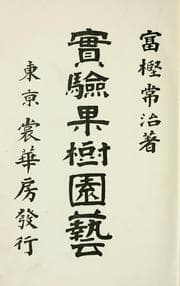 富樫常治著
實驗果樹園藝
東京裳華房發行